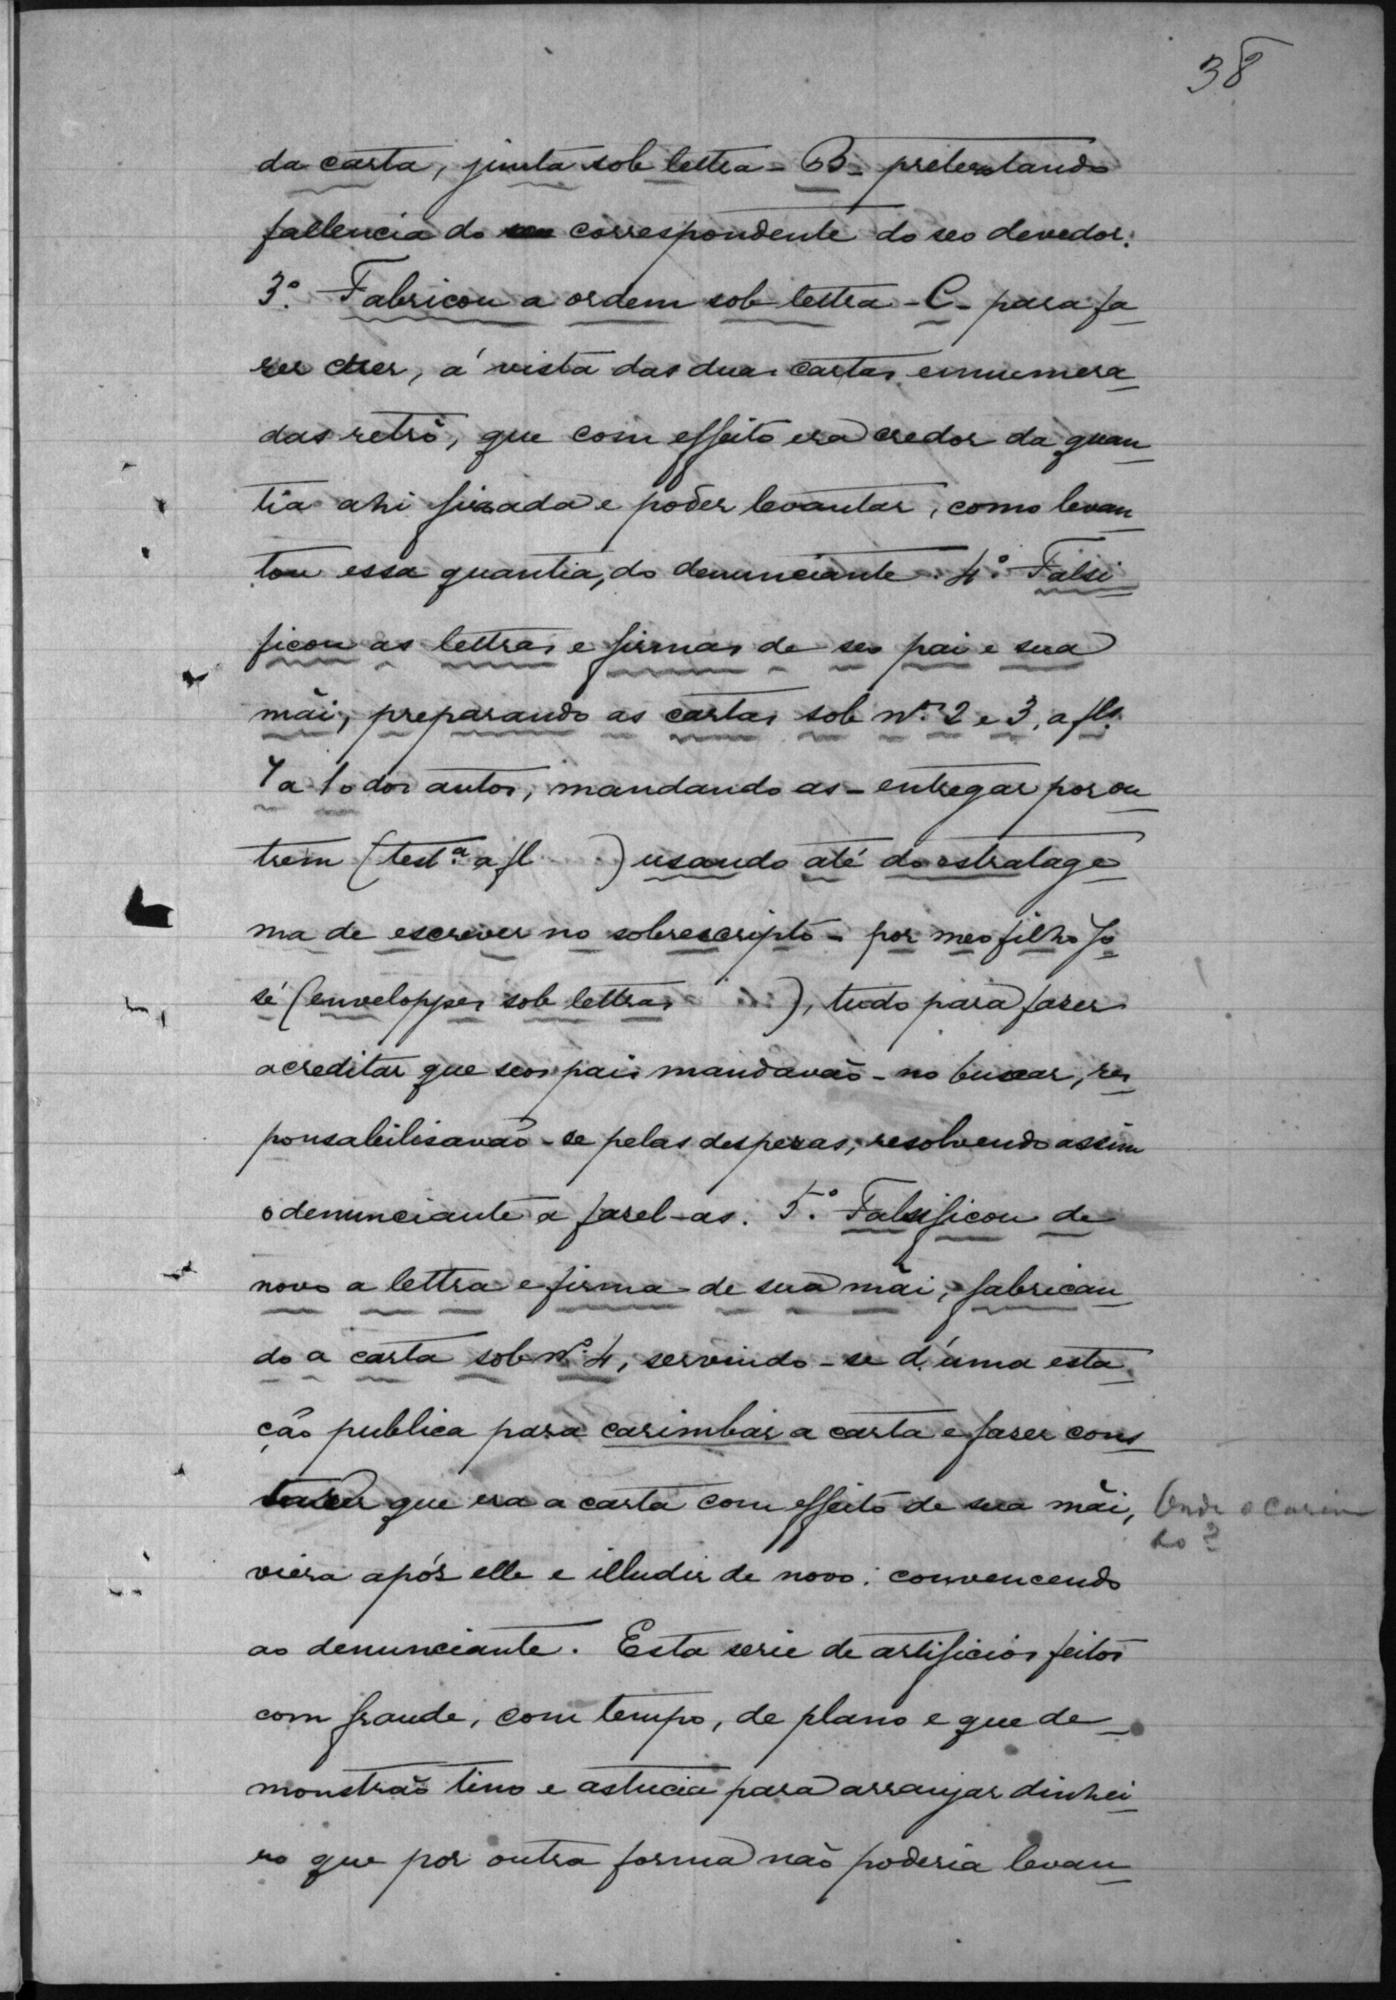 38
da carta, junta sob lettra - B - pretextando
fallencia do correspondente do seo devedor.
3º. Fabricou a ordem sob lettra - C - para fa-
zer crer, á vista das duas cartas ennumera-
das retrò, que com effeito era credor da quan-
tia ahi fixada e poder levantar, como levan-
tou essa quantia, do denunciante. 4º. Falsi-
ficou as lettras e firmas de seo pai e sua
mãi, preparando as cartas sob nos. 2 e 3, a fls.
9 a 10 dos autos, mandando as - entregar por ou-
trem (testa. a fl ) usando até do estratage-
ma de escrever no sobrescripto - por meo filho Jo-
sé (enveloppes sob lettras ), tudo para faser
acreditar que seos pais mandavão - no buscar, res-
ponsabilisavão - se pelas despezas, resolvendo assim
o denunciante a fasel-as. 5º. Falsificou de
novo a lettra e firma de sua mãi, fabrican-
do a carta sob nº. 4, servindo - se d'uma esta-
ção publica para carimbar a carta e faser cons-
que era a carta com effeito de sua mãi,
Onde o carim-
bo?
viera após elle e illudir de novo: convencendo
ao denunciante. Esta serie de artificios feitos
com fraude, com tempo, de plano e que de-
monstrão tino e astucia para arranjar dinhei-
ro que por outra forma não poderia levan-